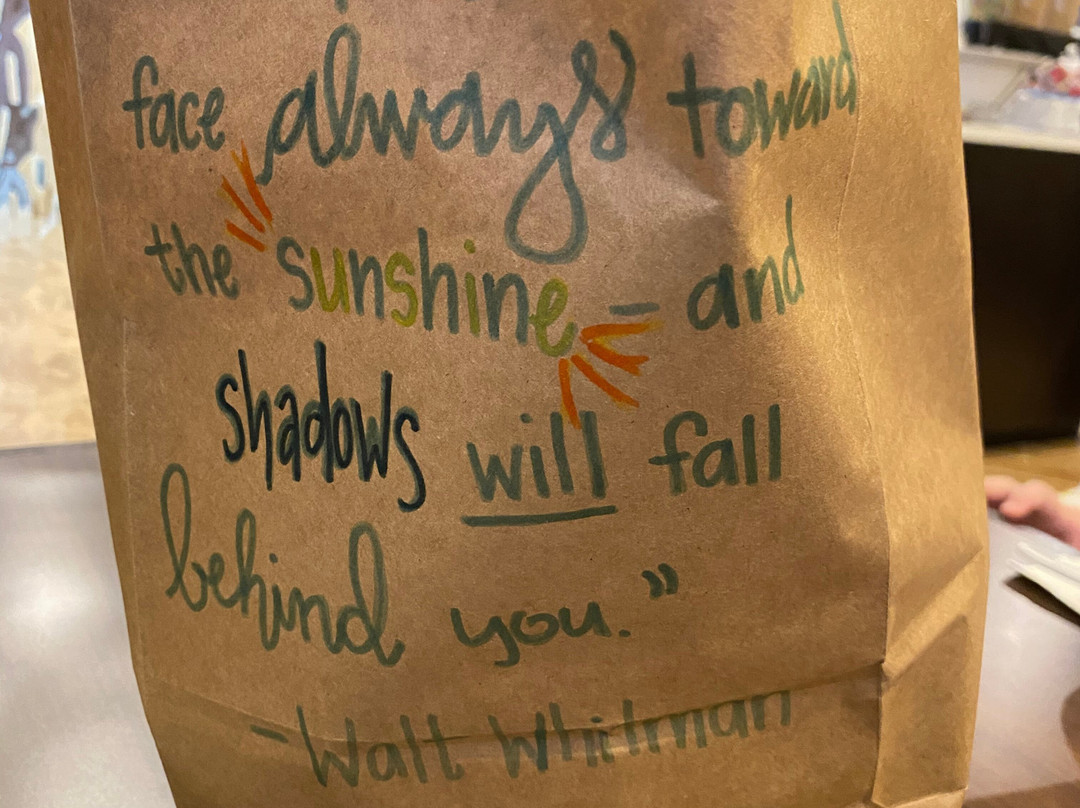 face always toward
the sunshine – and
shadows will fall
behind you."
- Walt Whitman